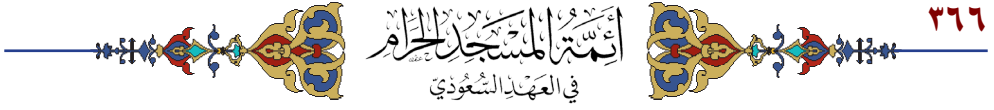 ٣٦٦
أَئِمَّةُ المَسْجِدِ الحَرَامِ
في العَهْدِ السُّعُودِيّ